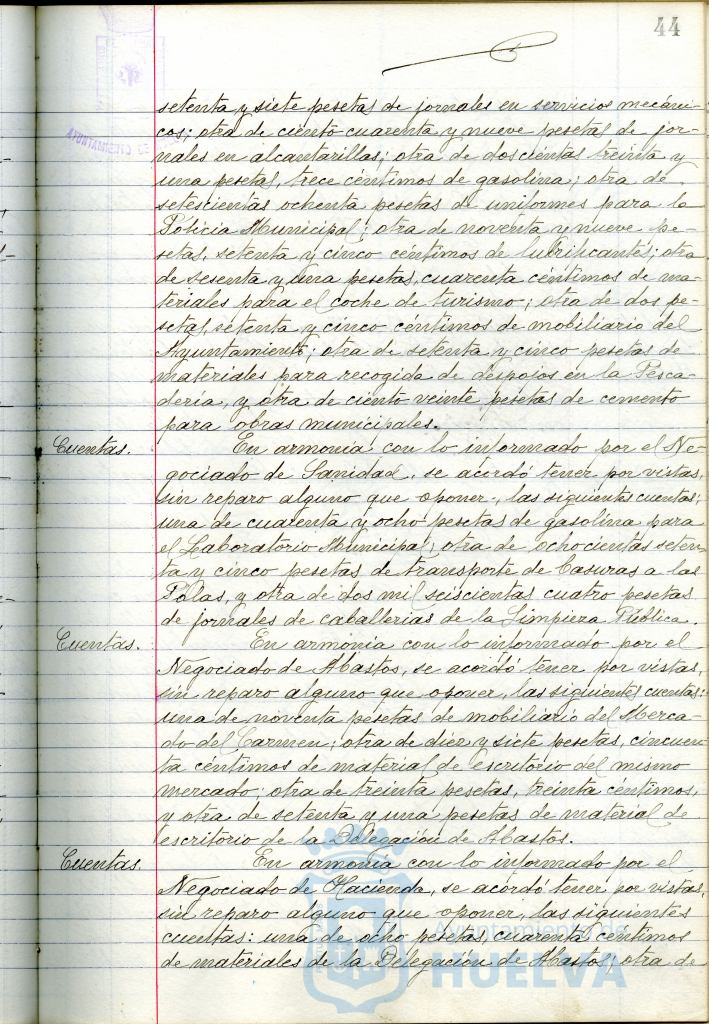 44
AYUNTAMIENTO DE
setenta y siete pesetas de jornales en servicios mecáni-
cos; otra de ciento cuarenta y nueve pesetas de jor-
nales en alcantarillas; otra de doscientas treinta y
una pesetas, trece céntimos de gasolina; otra de
setescientas ochenta pesetas de uniformes para la
Policia Municipal; otra de noventa y nueve pe-
setas, setenta y cinco céntimos de lubrificantes; otra
de sesenta y una pesetas, cuarenta céntimos de ma-
teriales para el coche de turismo; otra de dos pe-
setas, setenta y cinco céntimos de mobiliario del
Ayuntamiento; otra de setenta y cinco pesetas de
materiales para recogida de despojos en la Pesca-
deria, y otra de ciento veinte pesetas de cemento
para obras municipales.
Cuentas. En armonia con lo informado por el Ne-
gociado de Sanidad, se acordó tener por vistas,
sin reparo alguno que oponer, las siguientes cuentas:
una de cuarenta y ocho pesetas de gasolina para
el Laboratorio Municipal; otra de ochocientas seten-
ta y cinco pesetas de transporte de basuras a las
Polas, y otra de dos mil seiscientas cuatro pesetas
de jornales de caballerias de la Limpieza Pública.
Cuentas. En armonia con lo informado por el
Negociado de Abastos, se acordó tener por vistas,
sin reparo alguno que oponer, las siguientes cuentas:
una de noventa pesetas de mobiliario del Merca-
do del Carmen; otra de diez y siete pesetas, cincuen-
ta céntimos de material de escritorio del mismo
mercado; otra de treinta pesetas, treinta céntimos,
y otra de setenta y una pesetas de material de
escritorio de la Delegación de Abastos.
Cuentas. En armonia con lo informado por el
Negociado de Hacienda, se acordó tener por vistas,
sin reparo alguno que oponer, las siguientes
cuentas: una de ocho pesetas, cuarenta céntimos
de materiales de la Delegación de Abastos; otra de
Ayuntamiento de
HUELVA